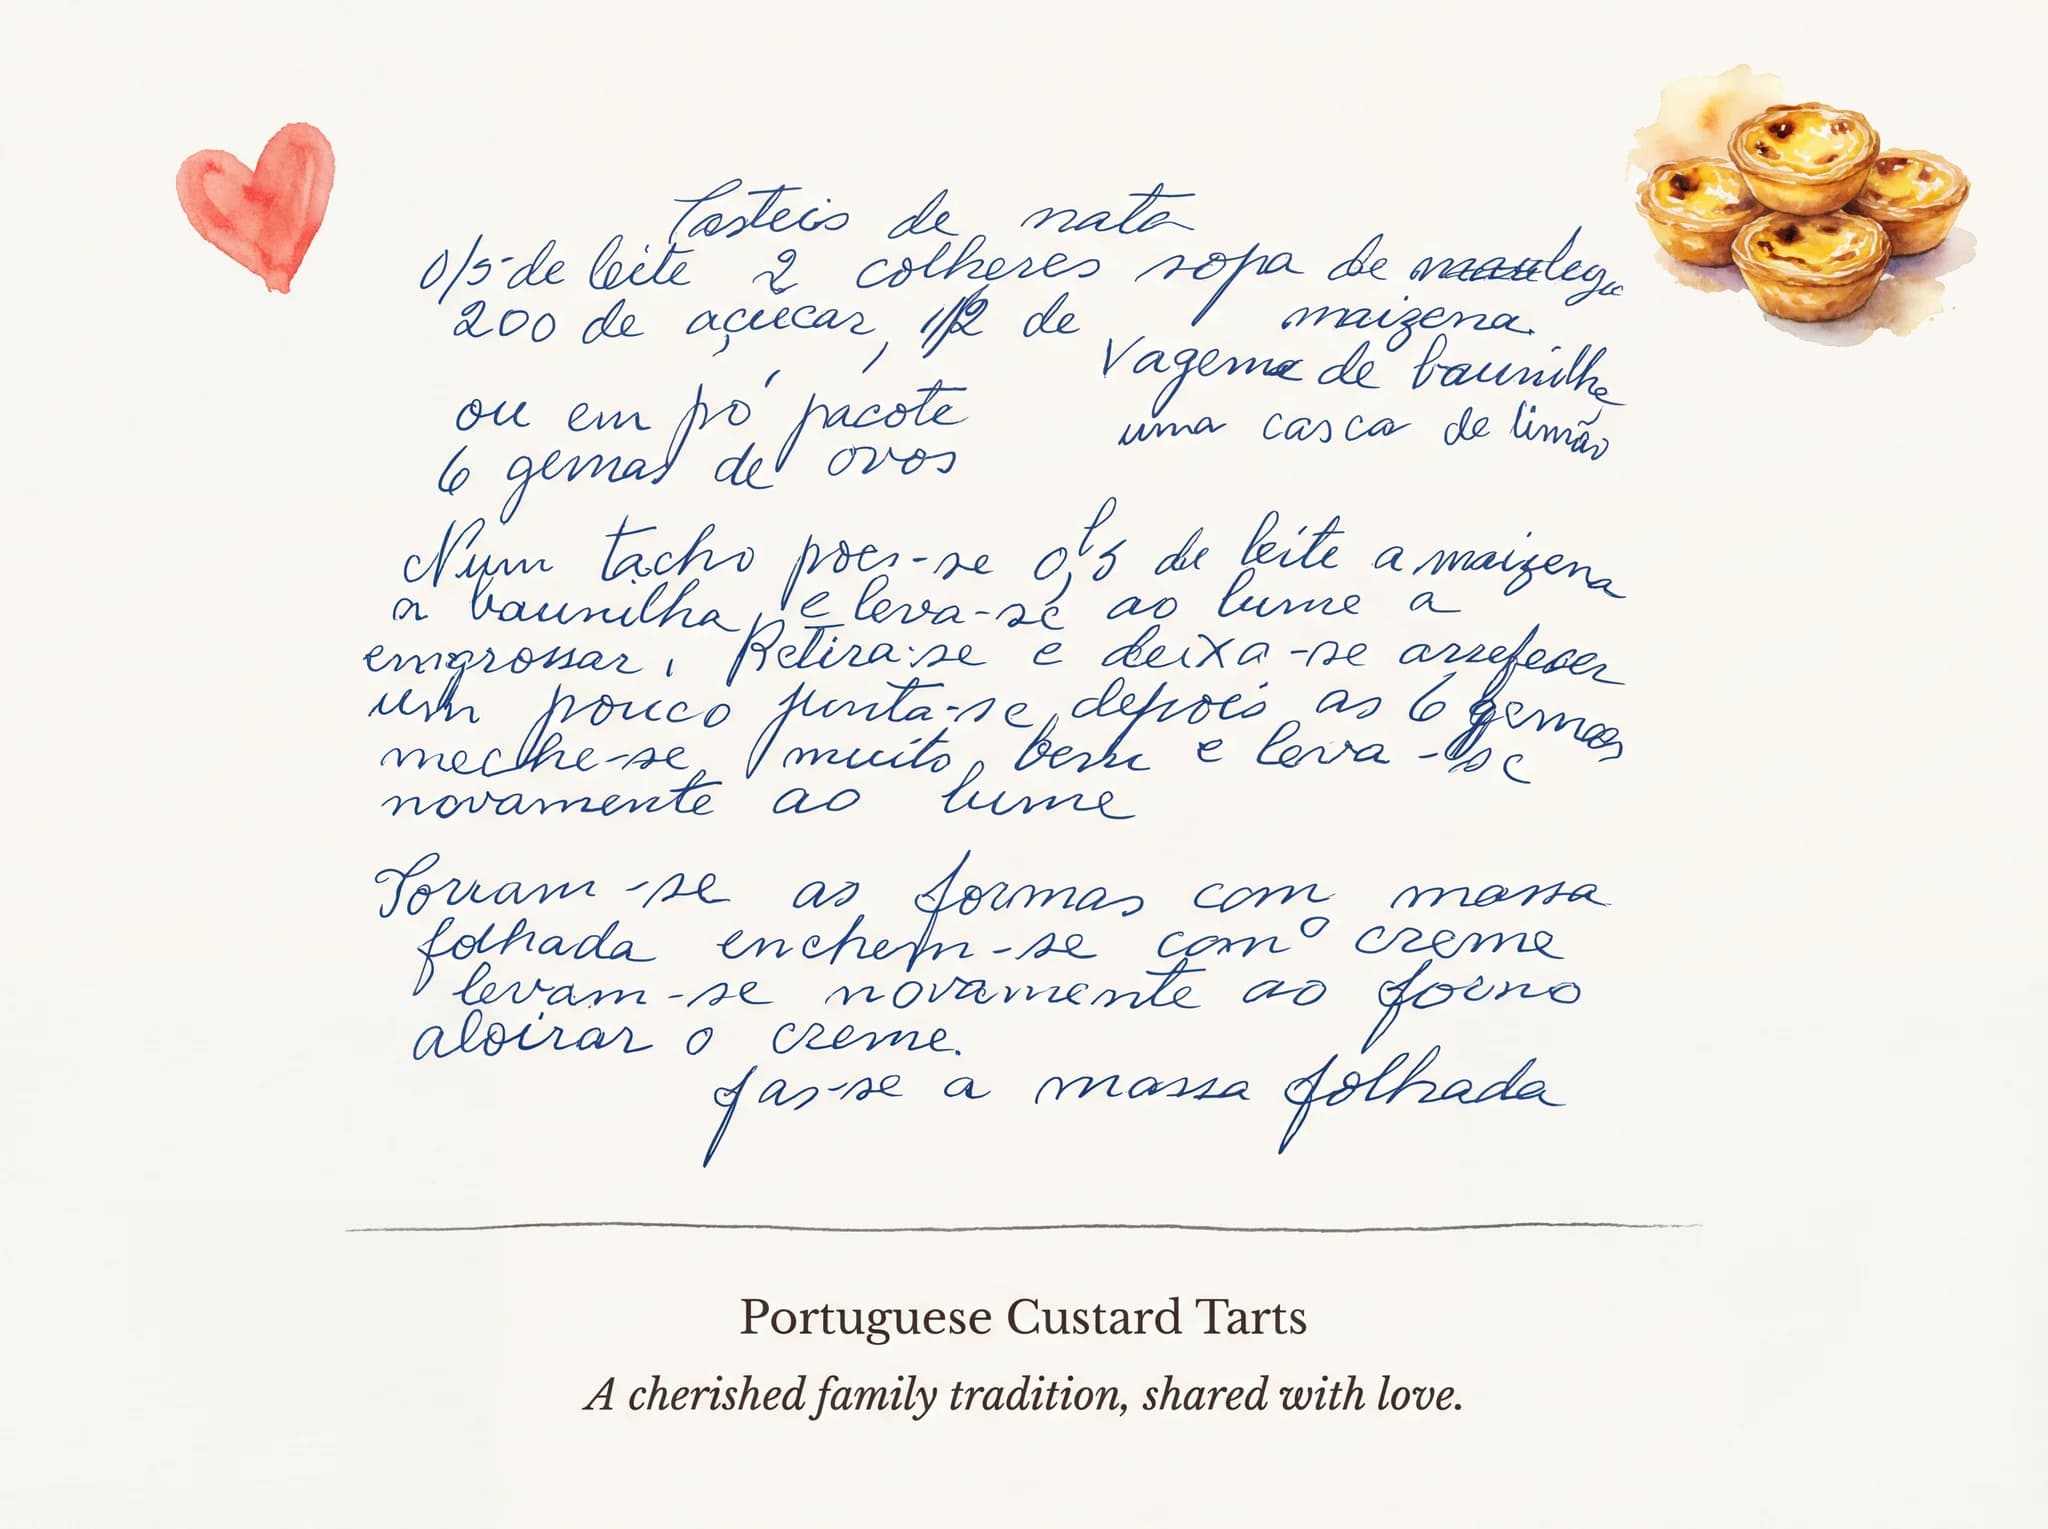 Pasteis de nata
0/5 de leite 2 colheres sopa de manteiga
200 de açúcar, 1/2 de maizena.
Vagem de baunilha
ou em pó pacote
uma casca de limão
6 gemas de ovos
Num tacho poes-se 0,5 l de leite a maizena
a baunilha, e leva-se ao lume a
emgrossar, Retira-se e deixa-se arrefecer
um pouco junta-se depois as 6 gemas
meche-se muito bem e leva-se
novamente ao lume
Forram-se as formas com massa
folhada enchem-se com o creme
levam-se novamente ao forno
aloirar o creme.
fas-se a massa folhada
Portuguese Custard Tarts
A cherished family tradition, shared with love.